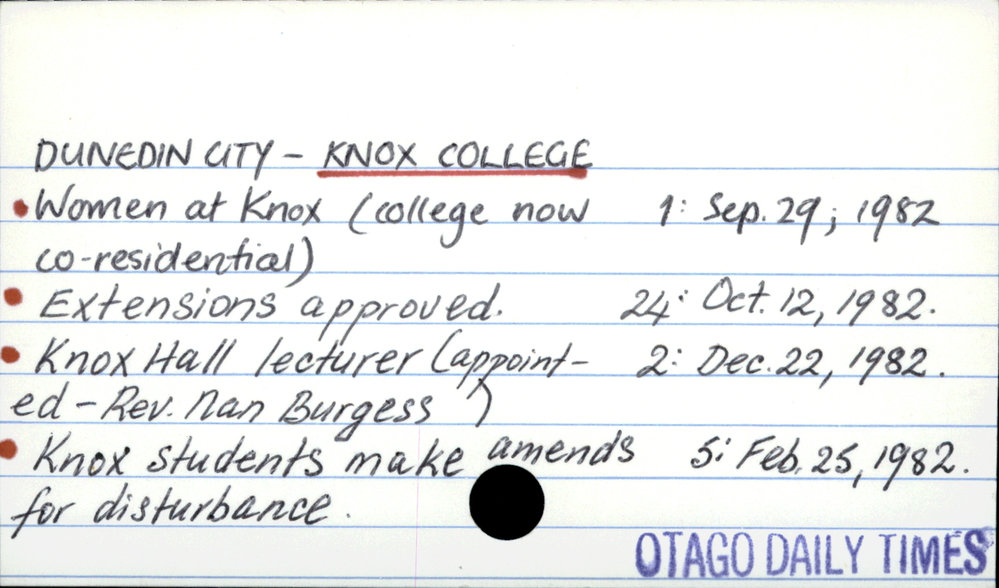 DUNEDIN CITY - KNOX COLLEGE
• Women at Knox (college now 1: Sep. 29; 1982
co-residential)
• Extensions approved. 24: Oct. 12, 1982.
• Knox Hall lecturer (appoint- 2: Dec. 22, 1982.
ed - Rev. Nan Burgess )
• Knox students make amends 5: Feb. 25, 1982.
for disturbance.
OTAGO DAILY TIMES